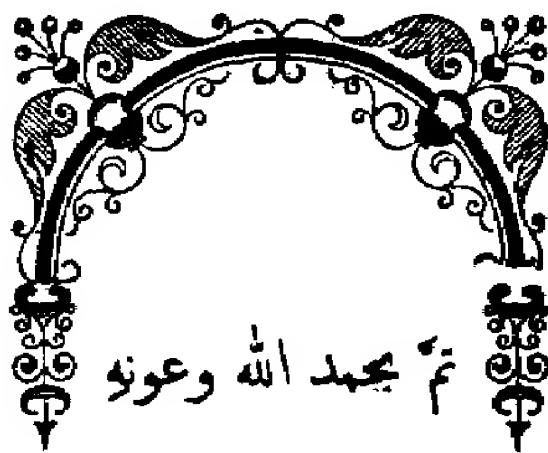 تمّ بحمد الله وعونه